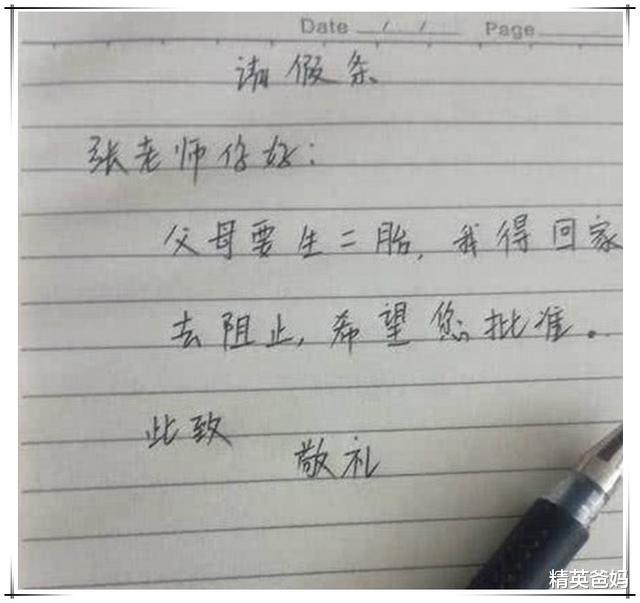 Date / / Page
请假条
张老师你好：
父母要生二胎，我得回家
去阻止，希望您批准。
此致
敬礼
精英爸妈